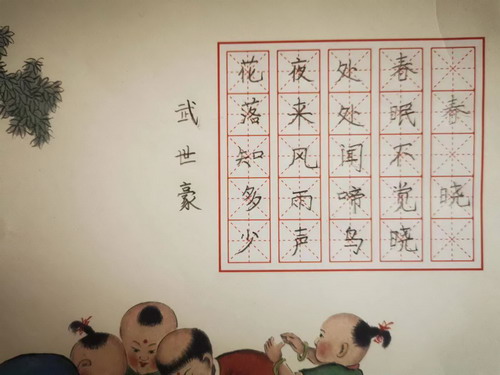 春晓
春眠不觉晓
处处闻啼鸟
夜来风雨声
花落知多少
武世豪